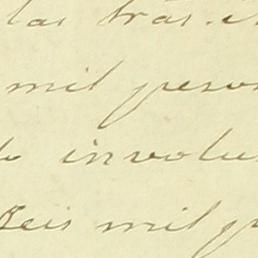 las tras.
mil pesos
involu
Seis mil p